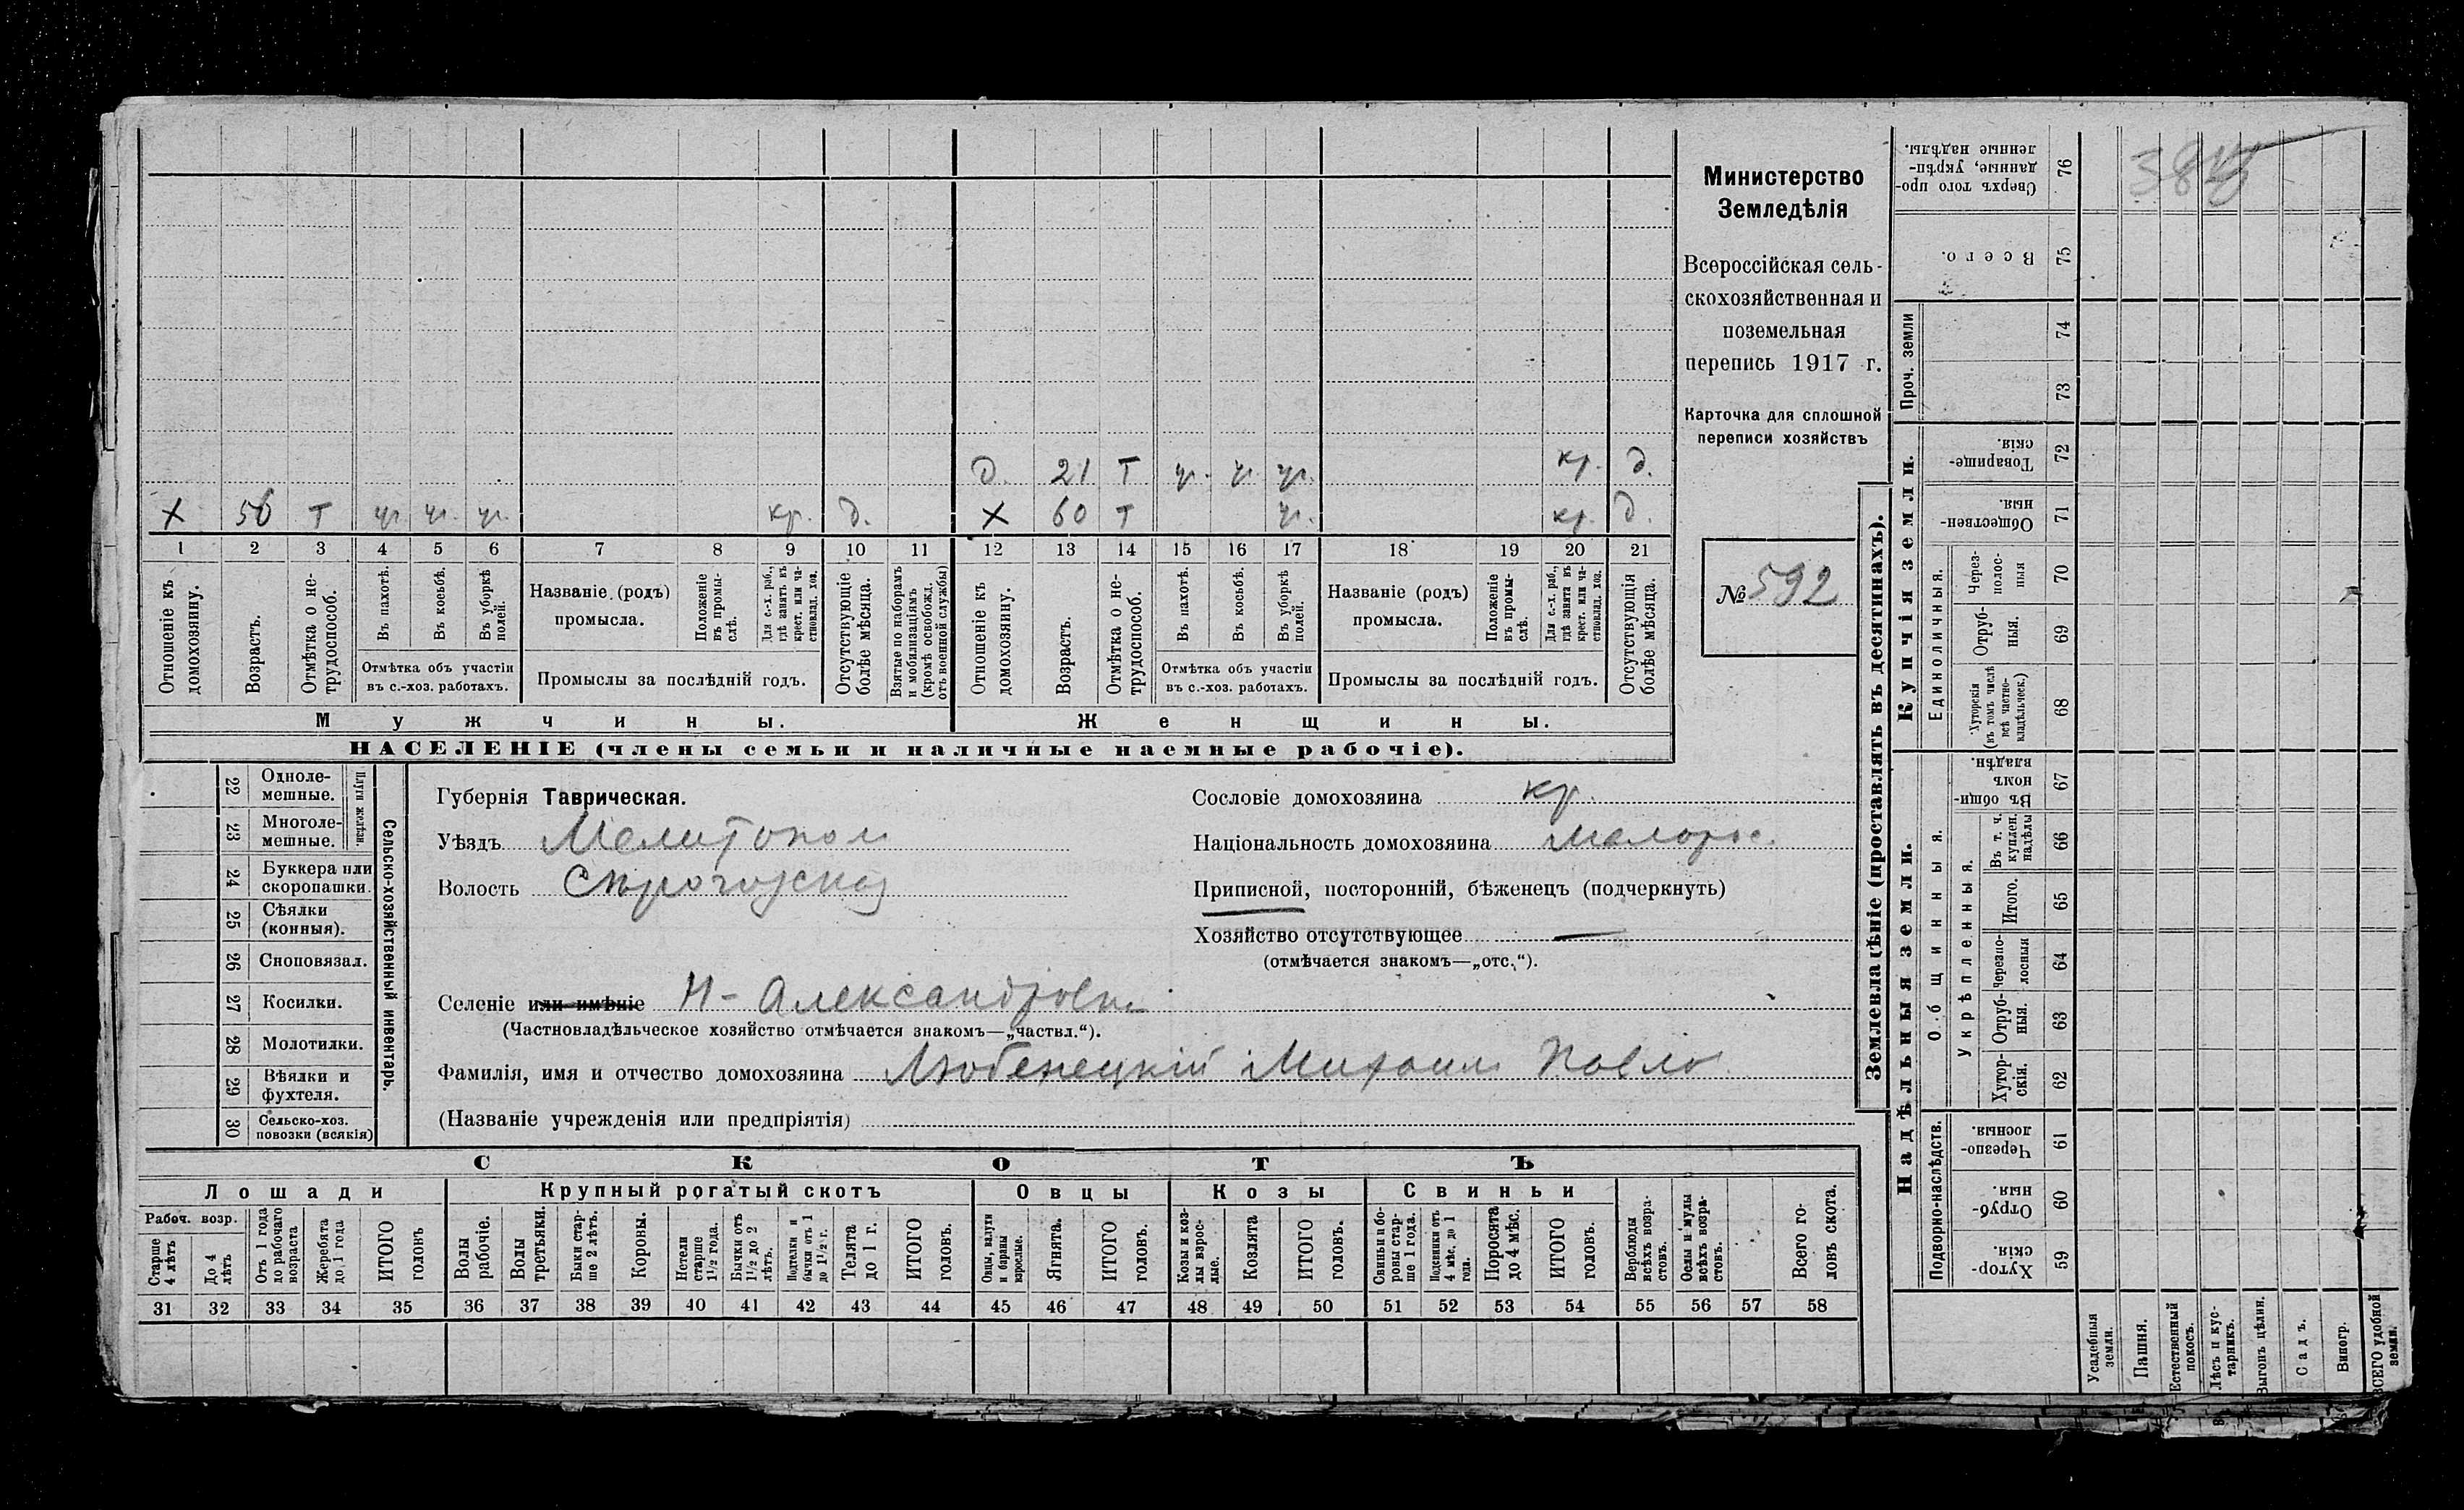 Министерство
Земледѣлія
Всероссійская сель-
скохозяйственная и
поземельная
перепись 1917 г.
Карточка для сплошной
переписи хозяйствъ
№ 592
д. 21 т ч. ч. ч. кр. д.
х 56 т ч. ч. ч. кр. д. х 60 т ч. кр. д.
1 2 3 4 5 6 7 8 9 10 11 12 13 14 15 16 17 18 19 20 21
Отношеніе къ домохозяину.
Возрастъ.
Отмѣтка о не-трудоспособ.
Въ пахотѣ.
Въ косьбѣ.
Въ уборкѣ полей.
Отмѣтка объ участіи
въ с.-хоз. работахъ.
Названіе (родъ)
промысла.
Положеніе въ промы-слѣ.
Для с.-х. раб., гдѣ занятъ въ крест. или ча-стновлад. хоз.
Промыслы за послѣдній годъ.
Отсутствующіе болѣе мѣсяца.
Взятые по наборамъ и мобилизаціямъ (кромѣ освобожд. отъ военной службы)
Отношеніе къ домохозяину.
Возрастъ.
Отмѣтка о не-трудоспособ.
Въ пахотѣ.
Въ косьбѣ.
Въ уборкѣ полей.
Отмѣтка объ участіи
въ с.-хоз. работахъ.
Названіе (родъ)
промысла.
Положеніе въ промы-слѣ.
Для с.-х. раб., гдѣ занята въ крест. или ча-стновлад. хоз.
Промыслы за послѣдній годъ.
Отсутствующія болѣе мѣсяца.
Мужчины. Женщины.
НАСЕЛЕНІЕ (члены семьи и наличные наемные рабочіе).
22 Одноле-мешные.
23 Многоле-мешные.
Плуги желѣзн.
24 Буккера или скоропашки.
25 Сѣялки (конныя).
26 Сноповязал.
27 Косилки.
28 Молотилки.
29 Вѣялки и фухтеля.
30 Сельско-хоз. повозки (всякія)
Сельско-хозяйственный инвентарь.
Губернія Таврическая.
Уѣздъ Мелитопол
Волость
Селеніе или имѣніе Н-Александровк
(Частновладѣльческое хозяйство отмѣчается знакомъ—„частвл.“).
Фамилія, имя и отчество домохозяина Любенецкій Михаил Павло
(Названіе учрежденія или предпріятія)
Сословіе домохозяина кр.
Національность домохозяина малорос.
Приписной, посторонній, бѣженецъ (подчеркнуть)
Хозяйство отсутствующее —
(отмѣчается знакомъ—„отс.“).
СКОТЪ
Лошади Крупный рогатый скотъ Овцы Козы Свиньи
Рабоч. возр.
Старше 4 лѣтъ
До 4 лѣтъ
Отъ 1 года до рабочаго возраста
Жеребята до 1 года
ИТОГО головъ
Волы рабочіе.
Волы третьяки.
Быки стар-ше 2 лѣтъ.
Коровы.
Нетели старше 1½ года.
Бычки отъ 1½ до 2 лѣтъ.
Подтелки и бычки отъ 1 до 1½ г.
Телята до 1 г.
ИТОГО головъ.
Овцы, валухи и бараны взрослые.
Ягнята.
ИТОГО головъ.
Козы и коз-лы взрос-лые.
Козлята
ИТОГО головъ.
Свиньи и бо-ровы стар-ше 1 года.
Подсвинки отъ 4 мѣс. до 1 года.
Поросята до 4 мѣс.
ИТОГО головъ.
Верблюды всѣхъ возра-стовъ.
Ослы и мулы всѣхъ возра-стовъ.
Всего го-ловъ скота.
31 32 33 34 35 36 37 38 39 40 41 42 43 44 45 46 47 48 49 50 51 52 53 54 55 56 57 58
Землевладѣніе (проставлять въ десятинахъ).
Надѣльныя земли. Купчія земли. Проч. земли
Подворно-наслѣдств.
Общинныя.
Укрѣпленныя.
Единоличныя.
Сверхъ того про-данные, укрѣп-ленные надѣлы. 76
Всего. 75
74
73
Товарище-скія. 72
Обществен-ныя. 71
Через-полос-ныя 70
Отруб-ныя. 69
Хуторскія (въ томъ числѣ всѣ частно-владѣльческ.) 68
Въ общин-номъ владѣн. 67
Въ т. ч. куплен. надѣлы 66
Итого. 65
Черезпо-лосныя 64
Отруб-ныя. 63
Хутор-скія. 62
Черезпо-лосныя. 61
Отруб-ныя. 60
Хутор-скія. 59
Усадебныя земли.
Пашня.
Естественный покосъ.
Лѣсъ и кус-тарникъ.
Выгонъ цѣлин.
Садъ.
Виногр.
ВСЕГО удобной земли.